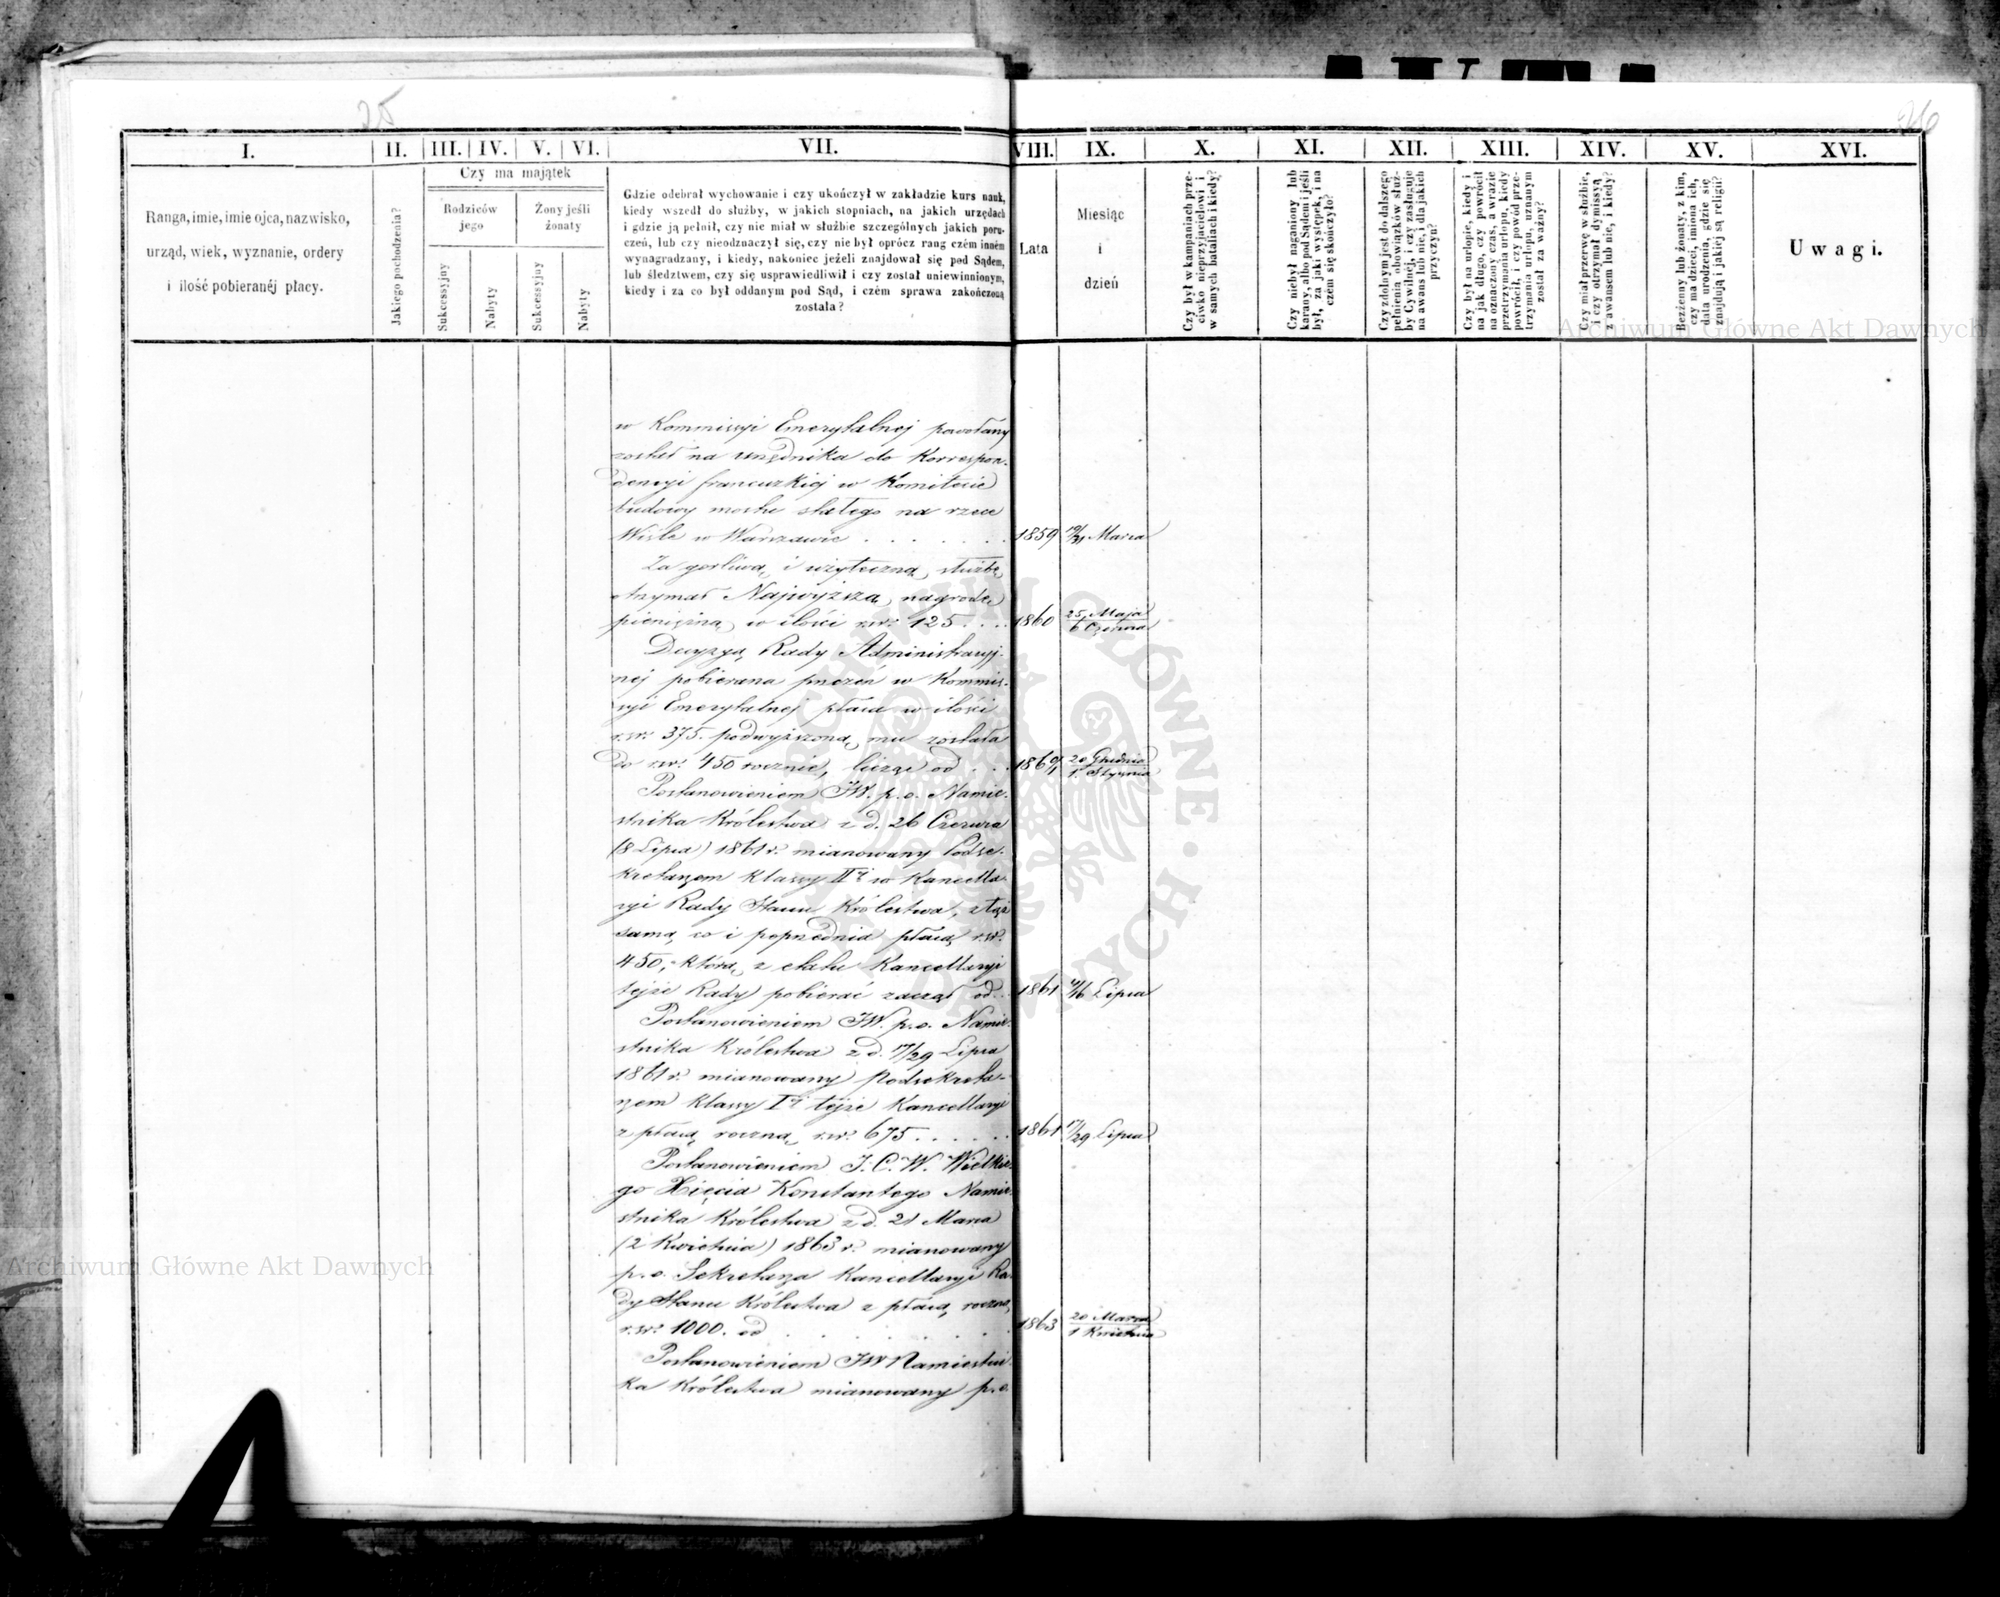 25
26
I.
II.
III.
IV.
V.
VI.
VII.
VIII.
IX.
X.
XI.
XII.
XIII.
XIV.
XV.
XVI.
Ranga, imie, imie ojca, nazwisko,
urząd, wiek, wyznanie, ordery
i ilość pobieranéj płacy.
Jakiego pochodzenia?
Czy ma majątek
Rodziców
jego
Żony jeśli
żonaty
Sukcessyjny
Nabyty
Sukcessyjny
Nabyty
Gdzie odebrał wychowanie i czy ukończył w zakładzie kurs nauk,
kiedy wszedł do służby, w jakich stopniach, na jakich urzędach
i gdzie ją pełnił, czy nie miał w służbie szczególnych jakich poru-
czeń, lub czy nieodznaczył się, czy nie był oprócz rang czém inném
wynagradzany, i kiedy, nakoniec jeżeli znajdował się pod Sądem,
lub śledztwem, czy się usprawiedliwił i czy został uniewinnionym,
kiedy i za co był oddanym pod Sąd, i czém sprawa zakończoną
została?
Lata
Miesiąc
i
dzień
Czy był w kampaniach prze-
ciwko nieprzyjacielowi i
w samych bataliach i kiedy?
Czy niebył naganiony lub
karany, albo pod Sądem i jeśli
był, za jaki występek, i na
czém się skończyło?
Czy zdolnym jest do dalszego
pełnienia obowiązków służ-
by Cywilnej, i czy zasługuje
na awans lub nie, i dla jakich
przyczyn?
Czy był na urlopie, kiedy i
na jak długo, czy powrócił
na oznaczony czas, a w razie
przetrzymania urlopu, kiedy
powrócił, i czy powód prze-
trzymania urlopu, uznanym
został za ważny?
Czy miał przerwę w służbie,
i czy otrzymał dymissyą
z awansem lub nie, i kiedy?
Bezżenny lub żonaty, z kim,
czy ma dzieci, imiona ich,
data urodzenia, gdzie się
znajdują i jakiéj są religii?
Uwagi.
w Kommissyi Emerytalnej powołany
został na urzędnika do Korrespon-
dencyi francuzkiej w Komitecie
budowy mostu stałego na rzece
Wiśle w Warszawie . . . . . . 1859 19/31 Marca
Za gorliwą i użyteczną służbę
otrzymał Najwyższą nagrodę
pieniężną w ilości rsr. 125 . . . 1860 25 Maja
6 Czerwca
Decyzyą Rady Administracyj-
nej pobierana przezeń w Kommis-
syi Emerytalnej płaca w ilości
rsr. 375. podwyższoną mu została
do rsr. 450 rocznie, licząc od . . . 1860/1 20 Grudnia
1. Stycznia
Postanowieniem JW. p. o. Namie-
stnika Królestwa z d. 26 Czerwca
(8 Lipca) 1861 r. mianowany Podse-
kretarzem klassy IIéj w Kancella-
ryi Rady Stanu Królestwa, z tąż
samą co i poprzednia płacą rsr.
450, którą z etatu Kancellaryi
tejże Rady pobierać zaczął od . . 1861 4/16 Lipca
Postanowieniem JW. p. o. Namie-
stnika Królestwa z d. 17/29 Lipca
1861 r. mianowany Podsekreta-
rzem klassy Iéj tejże Kancellaryi
z płacą roczną rsr. 675 . . . . . 1861 17/29 Lipca
Postanowieniem J. C. W. Wielkie-
go Xięcia Konstantego Namie-
stnika Królestwa z d. 21 Marca
(2 Kwietnia) 1863 r. mianowany
p. o. Sekretarza Kancellaryi Ra-
dy Stanu Królestwa z płacą roczną
rsr. 1000. od . . . . . . . 1863 20 Marca
1 Kwietnia
Postanowieniem JW Namiestni-
ka Królestwa mianowany p. o.
Archiwum Główne Akt Dawnych
Archiwum Główne Akt Dawnych
ARCHIWUM GŁÓWNE · AKT DAWNYCH ·